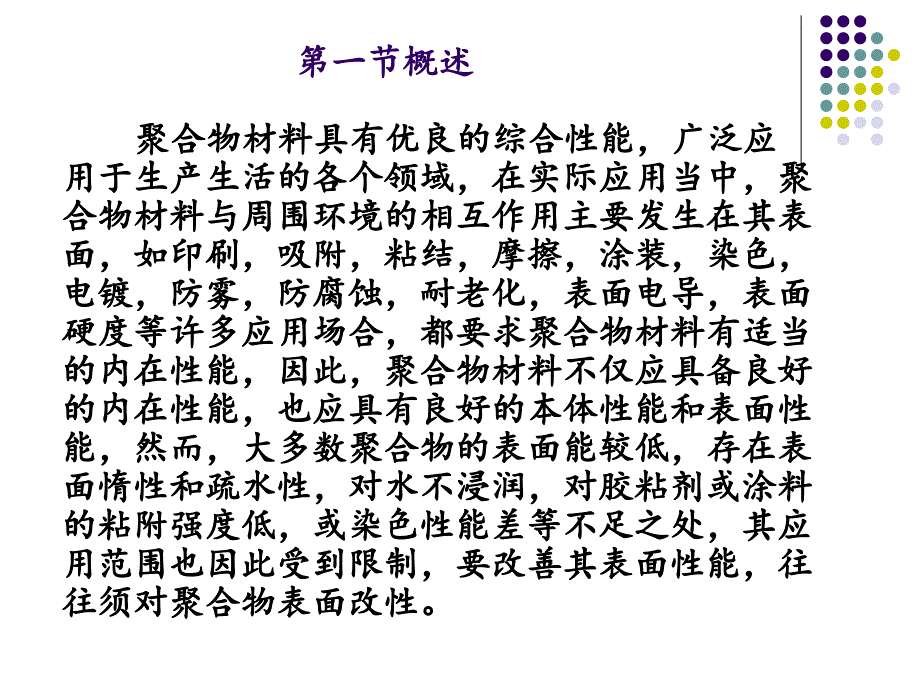 第一节概述
聚合物材料具有优良的综合性能，广泛应
用于生产生活的各个领域，在实际应用当中，聚
合物材料与周围环境的相互作用主要发生在其表
面，如印刷，吸附，粘结，摩擦，涂装，染色，
电镀，防雾，防腐蚀，耐老化，表面电导，表面
硬度等许多应用场合，都要求聚合物材料有适当
的内在性能，因此，聚合物材料不仅应具备良好
的内在性能，也应具有良好的本体性能和表面性
能，然而，大多数聚合物的表面能较低，存在表
面惰性和疏水性，对水不浸润，对胶粘剂或涂料
的粘附强度低，或染色性能差等不足之处，其应
用范围也因此受到限制，要改善其表面性能，往
往须对聚合物表面改性。